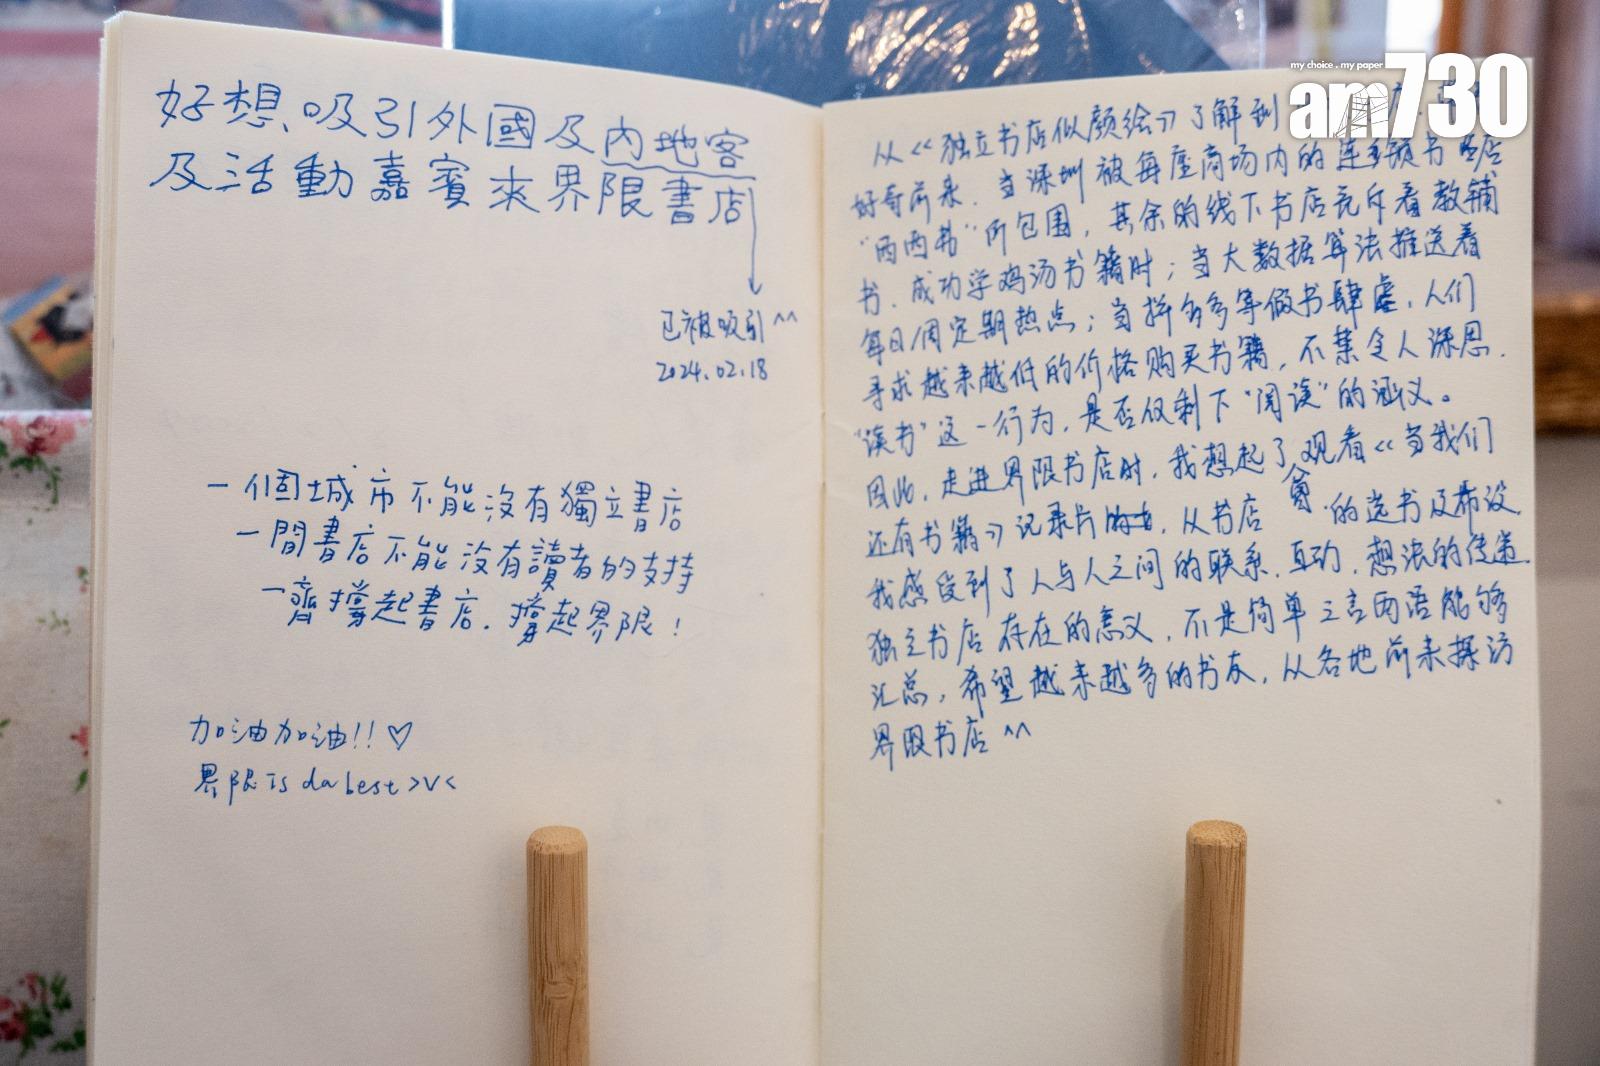 好想吸引外國及內地客
及活動嘉賓來界限書店
已被吸引^^
2024.02.18
一個城市不能沒有獨立書店
一間書店不能沒有讀者的支持
一齊撐起書店.撐起界限!
加油加油!!♡
界限is da best >v<
my choice . my paper
am730
从《独立书店似颜绘》了解到
好奇前来.当深圳被每座商场内的连锁书店
"西西书"所包围,其余的线下书店充斥着教辅
书.成功学鸡汤书籍时;当大数据算法推送着
每日/周定期热点;当拼多多等假书肆虐,人们
寻求越来越低的价格购买书籍,不禁令人深思.
"读书"这一行为,是否仅剩下"阅读"的涵义。
因此,走进界限书店时,我想起了观看《当我们
还有书籍》记录片,从书店 的选书及布设.
我感受到了人与人之间的联系.互动.想法的传递.
独立书店存在的意义,不是简单三言两语能够
汇总,希望越来越多的书友,从各地前来探访
界限书店^^